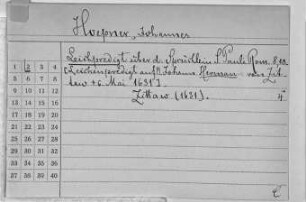 Hoepner, Johannes
Leichpredigt über d. Sprüchlein S. Pauli Rom. 8,
[Leichenpredigt auf Johann Herman von Zit-
taw + 6. Mai 1631].
Zittaw (1631). 4°
1 2 3 4
5 6 7 8
9 10 11 12
13 14 15 16
17 18 19 20
21 22 23 24
25 26 27 28
29 30 31 32
33 34 35 36
37 38 39 40